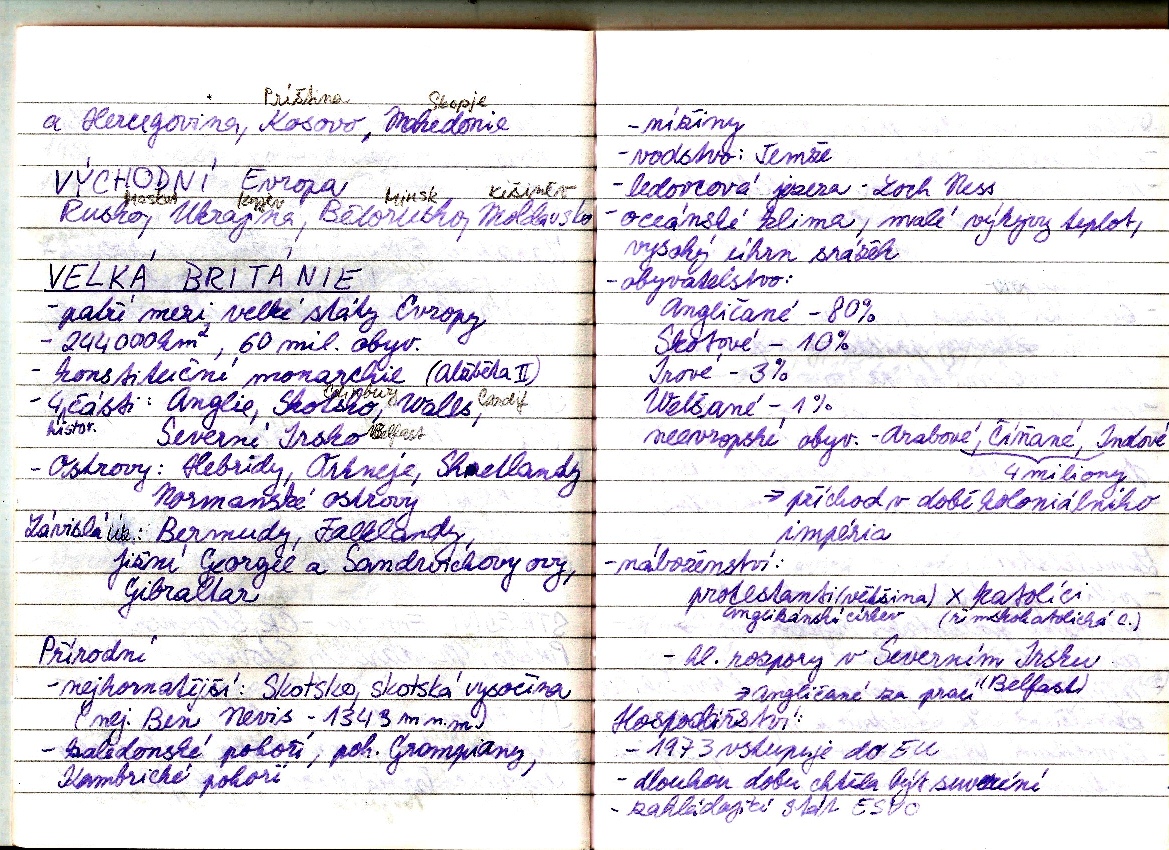 Priština Skopje
a Hercegovina, Kosovo, Makedonie
VÝCHODNÍ Evropa
Moskva Kyjev Minsk Kišiněv
Rusko, Ukrajina, Bělorusko, Moldavsko
VELKÁ BRITÁNIE
- patří mezi velké státy Evropy
- 244 000 km², 60 mil. obyv.
- konstituční monarchie (Alžběta II)
Edinburg Cardif
- 4 části: Anglie, Skotsko, Wales,
histor. Severní Irsko Belfast
- Ostrovy: Hebridy, Orkneje, Shetlandy
Normanské ostrovy
Závislá úz.: Bermudy, Falklandy,
Jižní Georgie a Sandwichovy ovy,
Gibraltar
Přírodní
- nejhornatější: Skotsko, skotská vysočina
(nej. Ben Nevis - 1343 m n.m)
- kaledonské pohoří, poh. Grampiany,
Kambrické pohoří
- nížiny
- vodstvo: Temže
- ledovcová jezera - Loch Ness
- oceánské klima, malé výkyvy teplot,
vysoký úhrn srážek
- obyvatelstvo:
Angličané - 80%
Skotové - 10%
Irové - 3%
Welšané - 1%
neevropské obyv. - Arabové, Číňané, Indové
4 miliony
→ příchod v době koloniálního
impéria
- náboženství:
protestanti (většina) x katolíci
anglikánská církev (římskokatolická c.)
- hl. rozpory v Severním Irsku
→ angličané za prací (Belfast)
Hospodářství:
- 1973 vstupuje do EU
- dlouhou dobu chtěla být suverénní
- zakládající stát ESVO